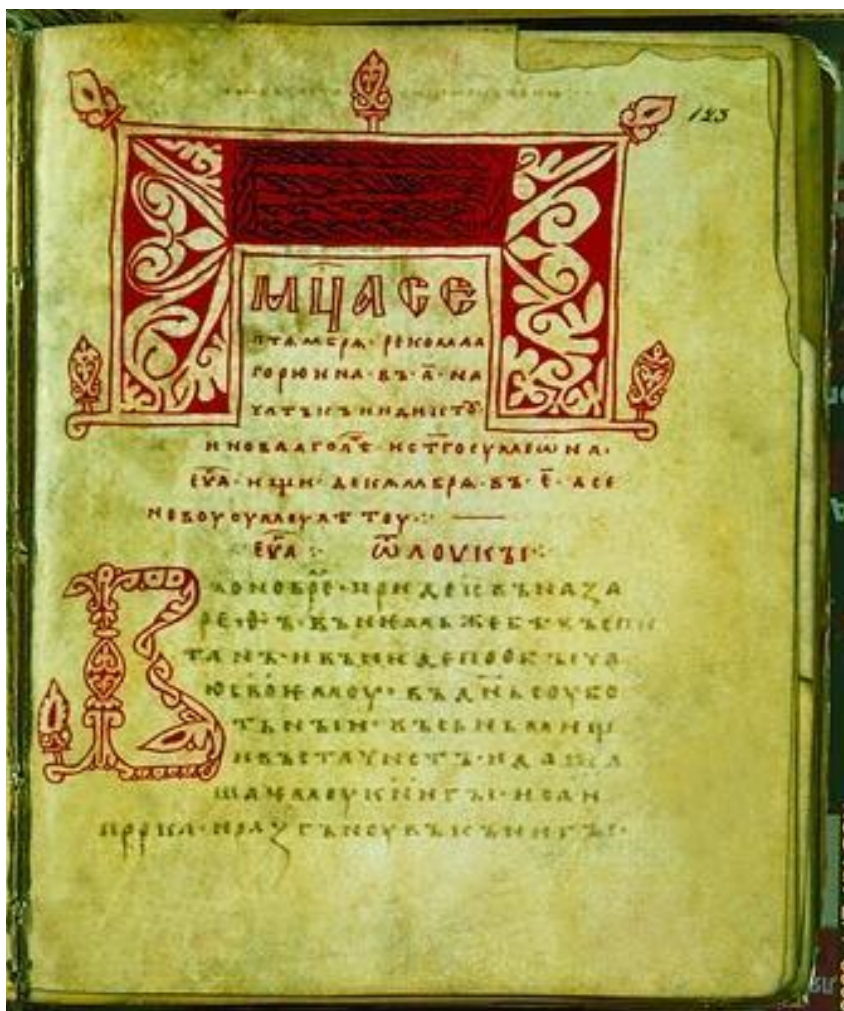 123
МЦА СЕ
ПТѦМБРѦ · РЕКОМАА
ГОРЮИНА · ВЪ · А҃ · НА
ЧАТЪКЪ ИНДИКТОУ
И НОВААГО ЛѢ · И СТГО СУМЕѠНА ·
ЕѴА · ИЩИ · ДЕКАМБРѦ · ВЪ · Е҃ · А СЕ
НОВОУОУМОУ ЛѢТОУ
ЕѴА ѾЛОУКЫ
ВЪ ОНО ВРЕ · ПРИДЕ ІС ВЪ НАЗА
РЕѲЪ · ВЪ НЕМЬЖЕ БѢ ВЪСПИ
ТАНЪ · И ВЪНИДЕ ПО ОБЪІЧА
Ю СВОЕМОУ · ВЪ ДН҃Ь СОУБО
ТЬНЪІИ · ВЪ СЪНЬМИЩ
И ВЪСТА ЧИСТЪ · И ДАША
ЕМОУ КНИГЪІ · ИСАИ
ПРРКА · И РАЗГЪНОУВЪ КЪНИГЪІ ·